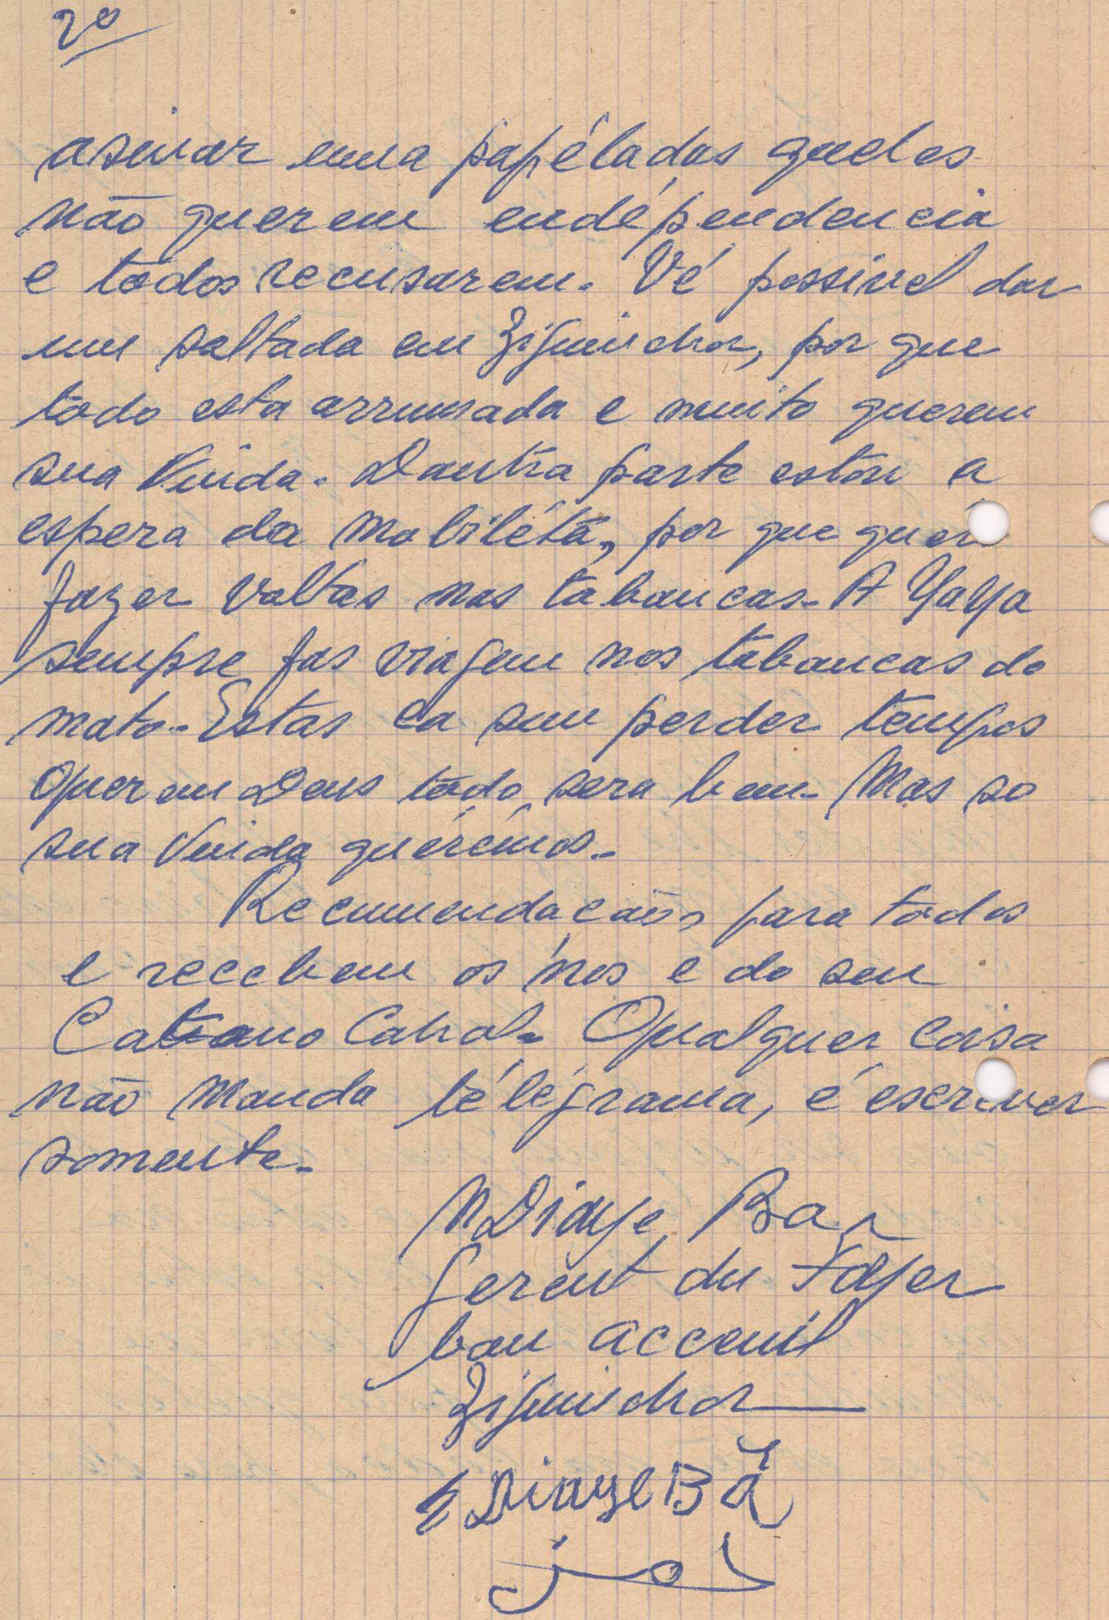 2º
asinar uma papéladas queles
não querem endépendencia
e todos recusarem. Vé possivel dar
um saltada em Ziguinchor, por que
todo esta arrumada e muito querem
sua Vinda. Dautra parte estou a
espera da mobiléta, por que quero
fazer Voltas nas tabancas. A Yaya
sempre fas viagem nos tabancas do
mato. Estas ca sem perder tempos
Querem Deus todo sera bem. Mas so
sua Vinda quérémos.
Recumendacaõs para todos
e recebem os nos e do seu
Caetano Cabral. Qualquer Coisa
não manda télégrama, é escriver
somente.
NDiaye Ba
Gerent du Foyer
bon acceuil
Ziguinchor
NDiaye Bâ